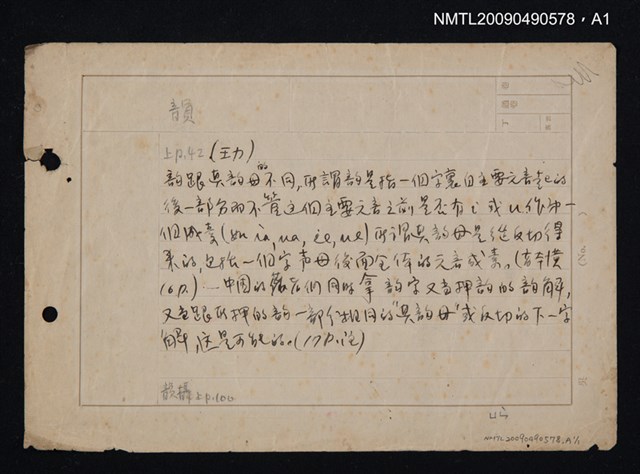 NMTL20090490578，A1
韻
上p.42 (王力)
韵跟具韵母的不同，所謂韵是指一個字裏自主要元音起的
後一部分而不管這個主要元音之前是否有 i 或 u 作為一
個成素 (如 ia, ua, ie, ue) 所謂具韵母是從反切得
來的，包括一個字声母後面全体的元音成素。(
16p.) 中国的們同時拿韵字又當押韵的韵解，
又當跟所押的韵一部分相同的"具韵母"或反切的下一字
解，這是可能的。(17p.注)
韻攝上p.100
NMTL20090490578, A1/1